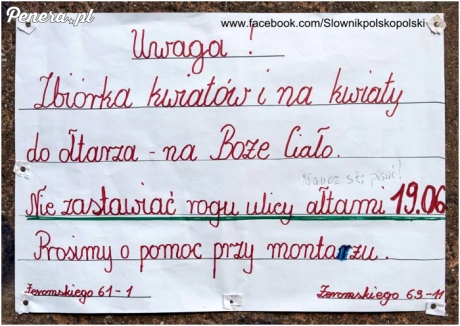 Penera.pl
www.facebook.com/Slownikpolskopolski
Uwaga !
Zbiórka kwiatów i na kwiaty
do ołtarza - na Boże Ciało.
Naucz się pisać!
Nie zastawiać rogu ulicy ałtami 19.06
Prosimy o pomoc przy montarzu.
Żeromskiego 61-1 Żeromskiego 69-11